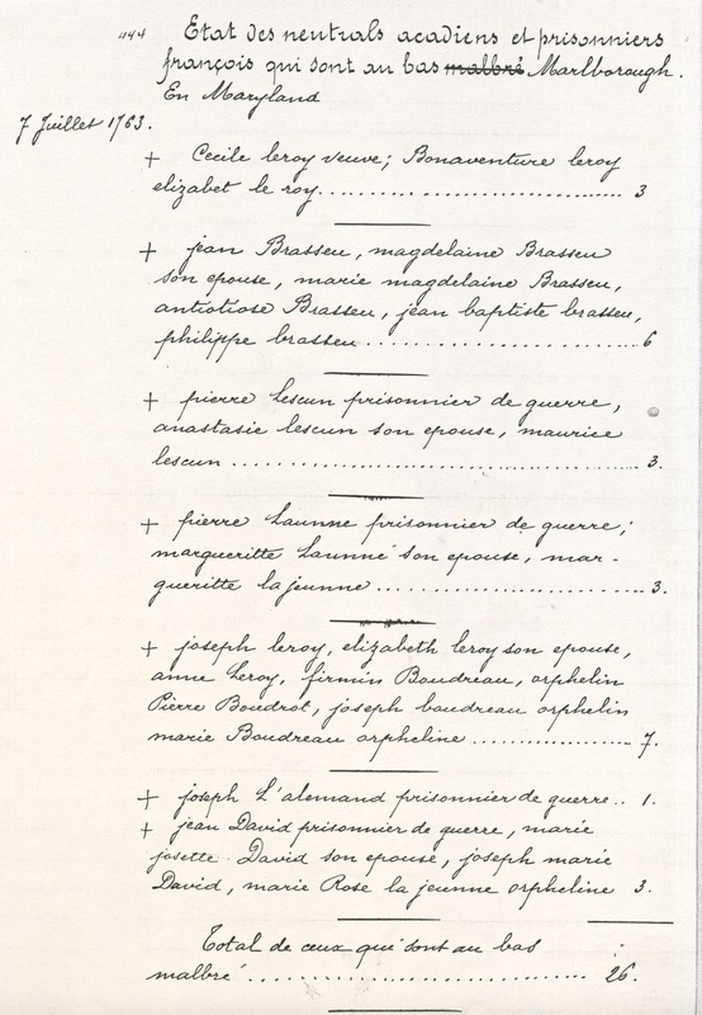 444 Etat des neutrals acadiens et prisonniers
françois qui sont au bas malbré Marlborough.
En Maryland
7 Juillet 1763.
+ Cecile leroy veuve; Bonaventure leroy
elizabet le roy........................................ 3
+ jean Brasseu, magdelaine Brasseu
son epouse, marie magdelaine Brasseu,
antiotiose Brasseu, jean baptiste brasseu,
philippe brasseu................................ 6
+ pierre Lescun prisonnier de guerre,
anastasie lescun son epouse, maurice
lescun ................................................ 3.
+ pierre Launne prisonnier de guerre;
margueritte Launné son epouse, mar-
gueritte la jeunne ............................... 3.
+ joseph leroy, elizabeth leroy son epouse,
anne Leroy, firmin Boudreau, orphelin
Pierre Boudrot, joseph boudreau orphelin
marie Boudreau orpheline .................... 7.
+ joseph L'alemand prisonnier de guerre.. 1.
+ jean David prisonnier de guerre, marie
josette David son epouse, joseph marie
David, marie Rose la jeunne orpheline 3.
Total de ceux qui sont au bas
malbré ........................................ 26.